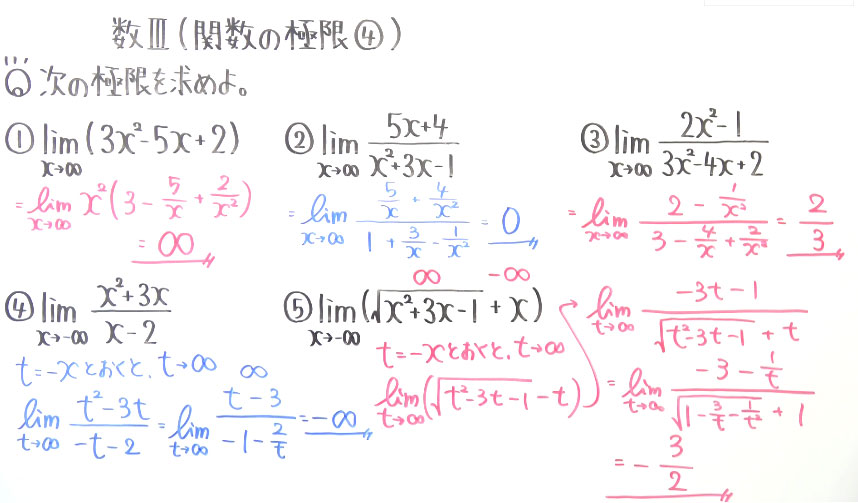 数Ⅲ(関数の極限④)
Q 次の極限を求めよ。
① lim_{x→∞} (3x²-5x+2)
= lim_{x→∞} x²(3 - 5/x + 2/x²)
= ∞
② lim_{x→∞} (5x+4)/(x²+3x-1)
= lim_{x→∞} (5/x + 4/x²)/(1 + 3/x - 1/x²) = 0
③ lim_{x→∞} (2x²-1)/(3x²-4x+2)
= lim_{x→∞} (2 - 1/x²)/(3 - 4/x + 2/x²) = 2/3
④ lim_{x→-∞} (x²+3x)/(x-2)
t=-xとおくと、t→∞ ∞
lim_{t→∞} (t²-3t)/(-t-2) = lim_{t→∞} (t-3)/(-1-2/t) = -∞
∞ -∞
⑤ lim_{x→-∞} (√(x²+3x-1) + x)
t=-xとおくと、t→∞
lim_{t→∞} (√(t²-3t-1) - t)
→ lim_{t→∞} (-3t-1)/(√(t²-3t-1) + t)
= lim_{t→∞} (-3 - 1/t)/(√(1 - 3/t - 1/t²) + 1)
= -3/2